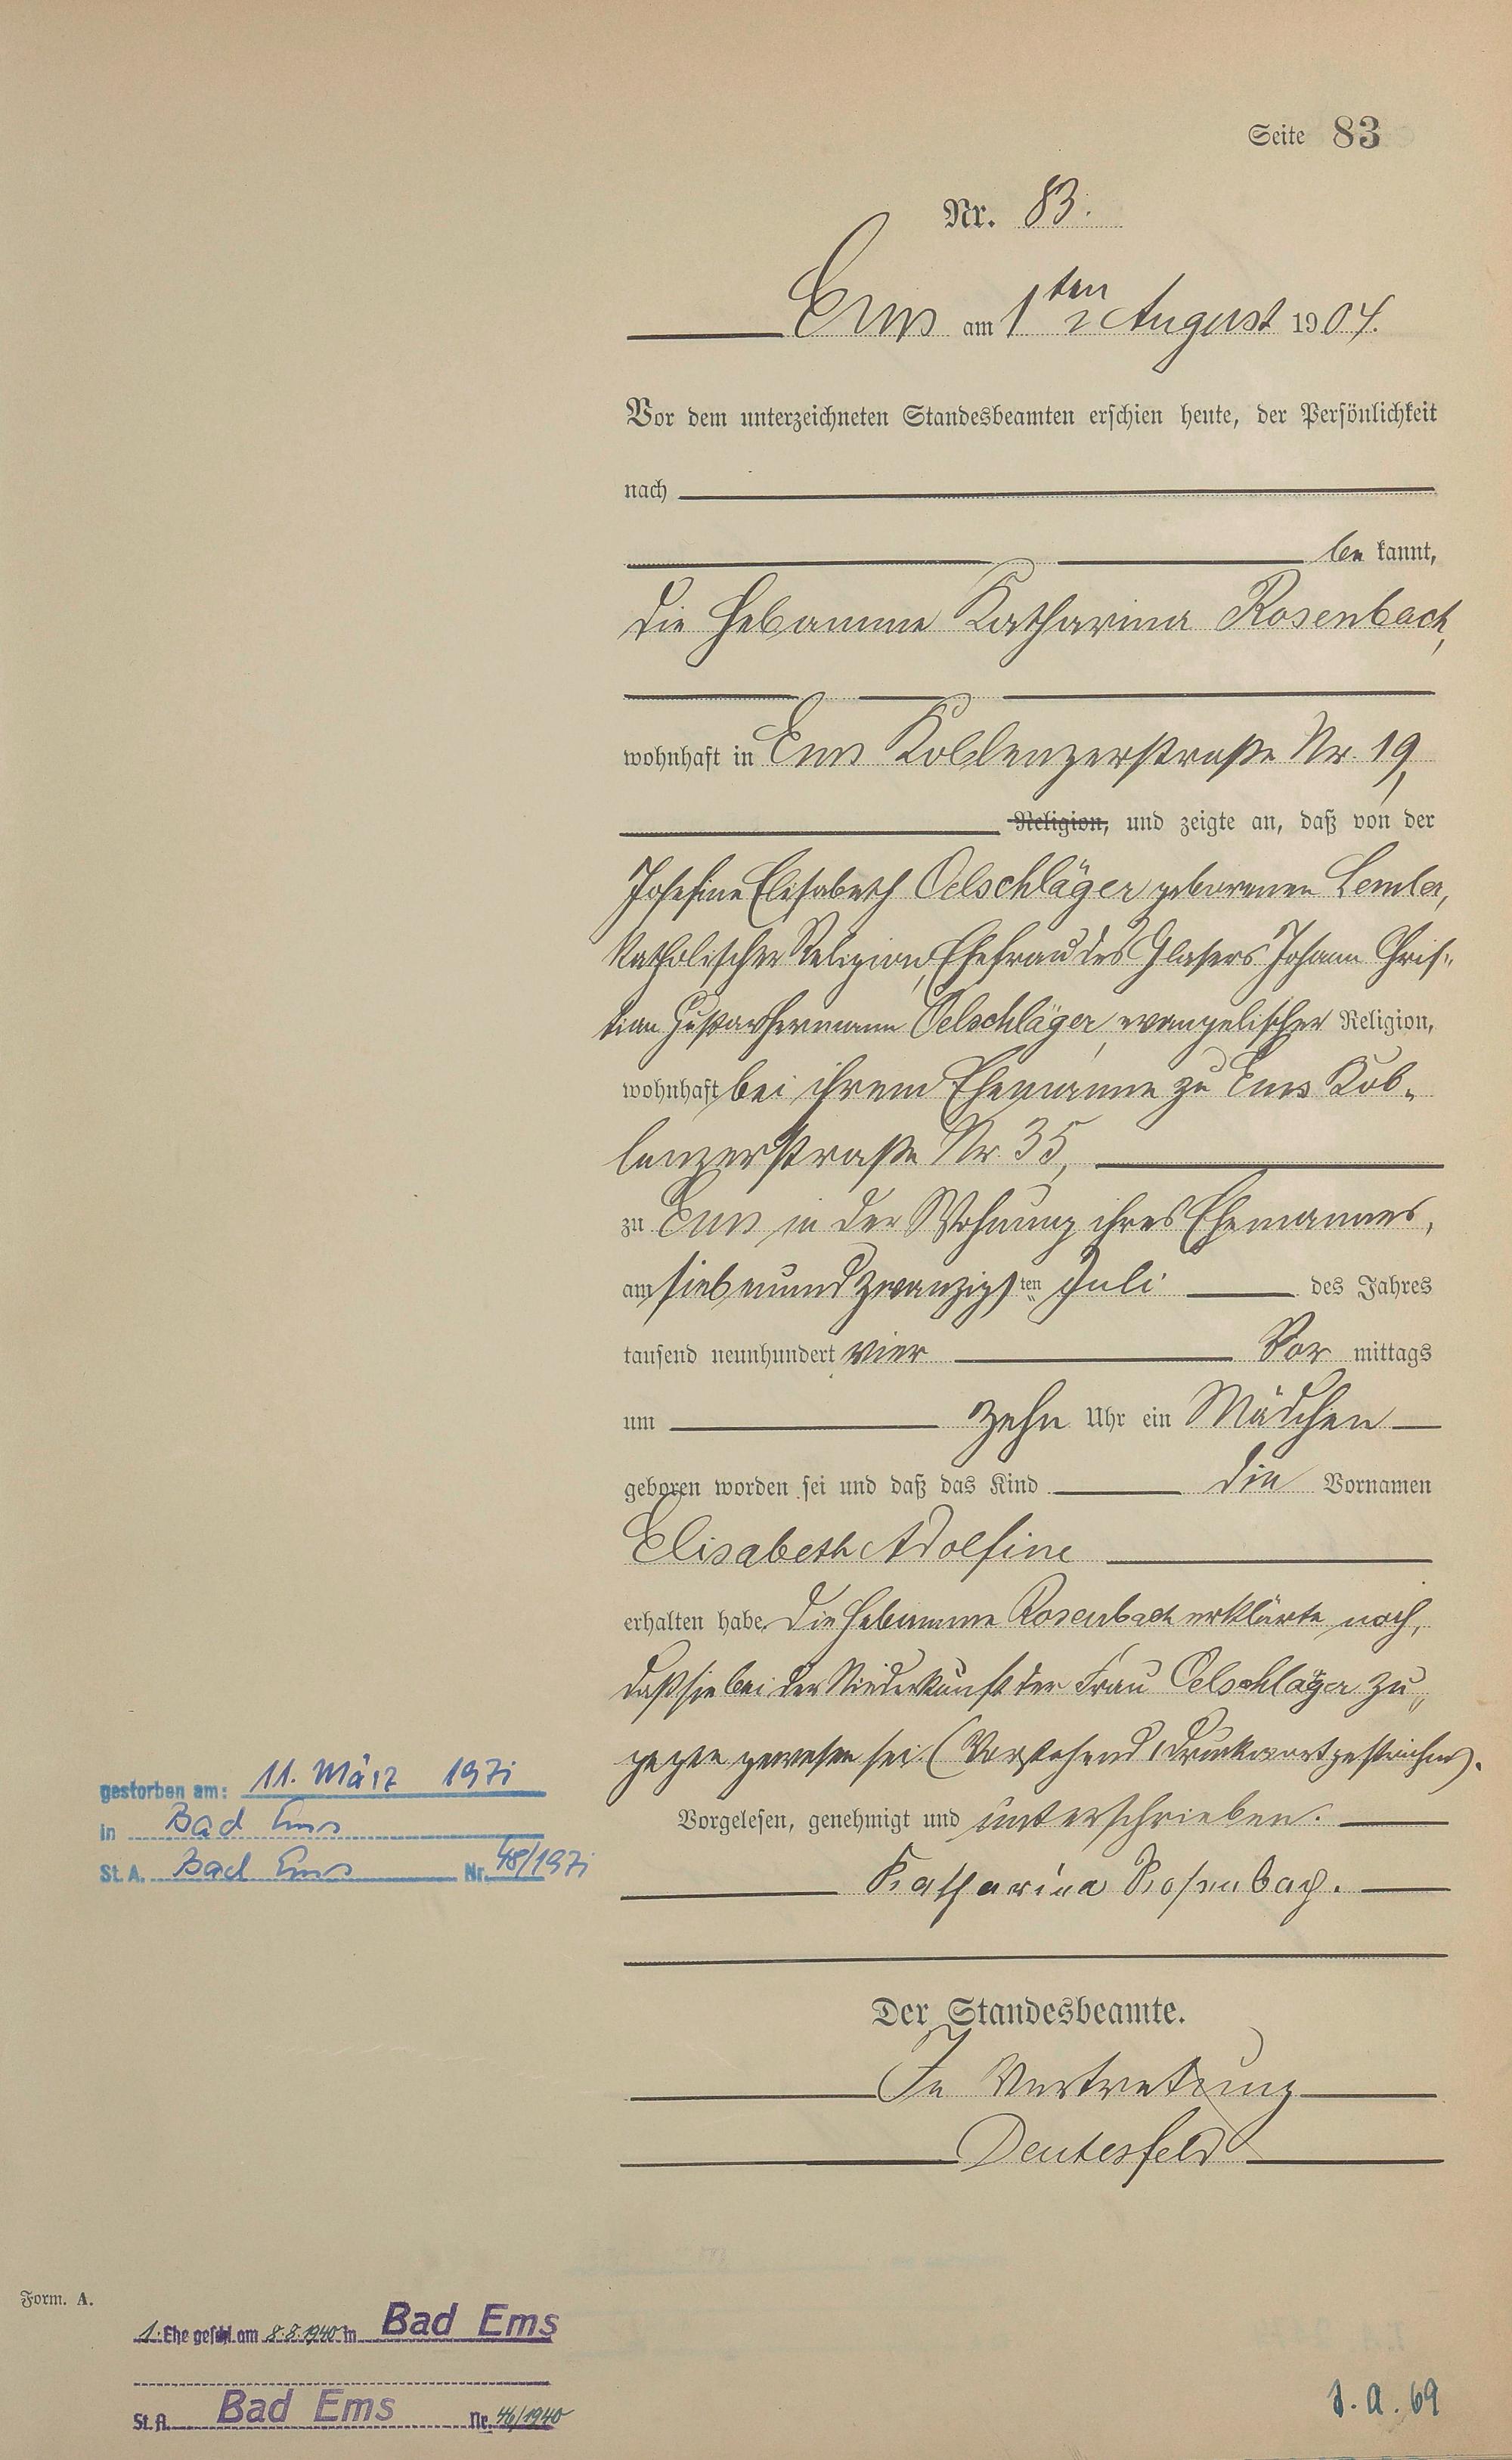 Seite 83
Nr. 83.
Ems am 1ten August 1904.
Vor dem unterzeichneten Standesbeamten erschien heute, der Persönlichkeit
nach
be kannt,
die Hebamme Katharina Rosenbach,
wohnhaft in Ems Koblenzerstraße Nr. 19,
Religion, und zeigte an, daß von der
Josefine Elisabeth Oelschläger geborenen Lemler,
katholischer Religion, Ehefrau des Glasers Johann Chris-
tian Gustav Hermann Oelschläger, evangelischer Religion,
wohnhaft bei ihrem Ehemanne zu Ems Kob-
lenzerstraße Nr. 35,
zu Ems in der Wohnung ihres Ehemannes,
am siebenundzwanzigsten Juli des Jahres
tausend neunhundert vier Vor mittags
um zehn Uhr ein Mädchen
geboren worden sei und daß das Kind die Vornamen
Elisabeth Adolfine
erhalten habe. Die Hebamme Rosenbach erklärte noch,
daß sie bei der Niederkunft der Frau Oelschläger zu-
gegen gewesen sei. (Vorstehend 1 Druckwort gestrichen).
Vorgelesen, genehmigt und unterschrieben.
Katharina Rosenbach.
Der Standesbeamte.
In Vertretung
Deutesfeld
gestorben am: 11. März 1971
in Bad Ems
St. A. Bad Ems Nr. 48/1971
Form. A.
1. Ehe geschl. am 8.8.1940 in Bad Ems
St. A. Bad Ems Nr. 46/1940
1. a. 69